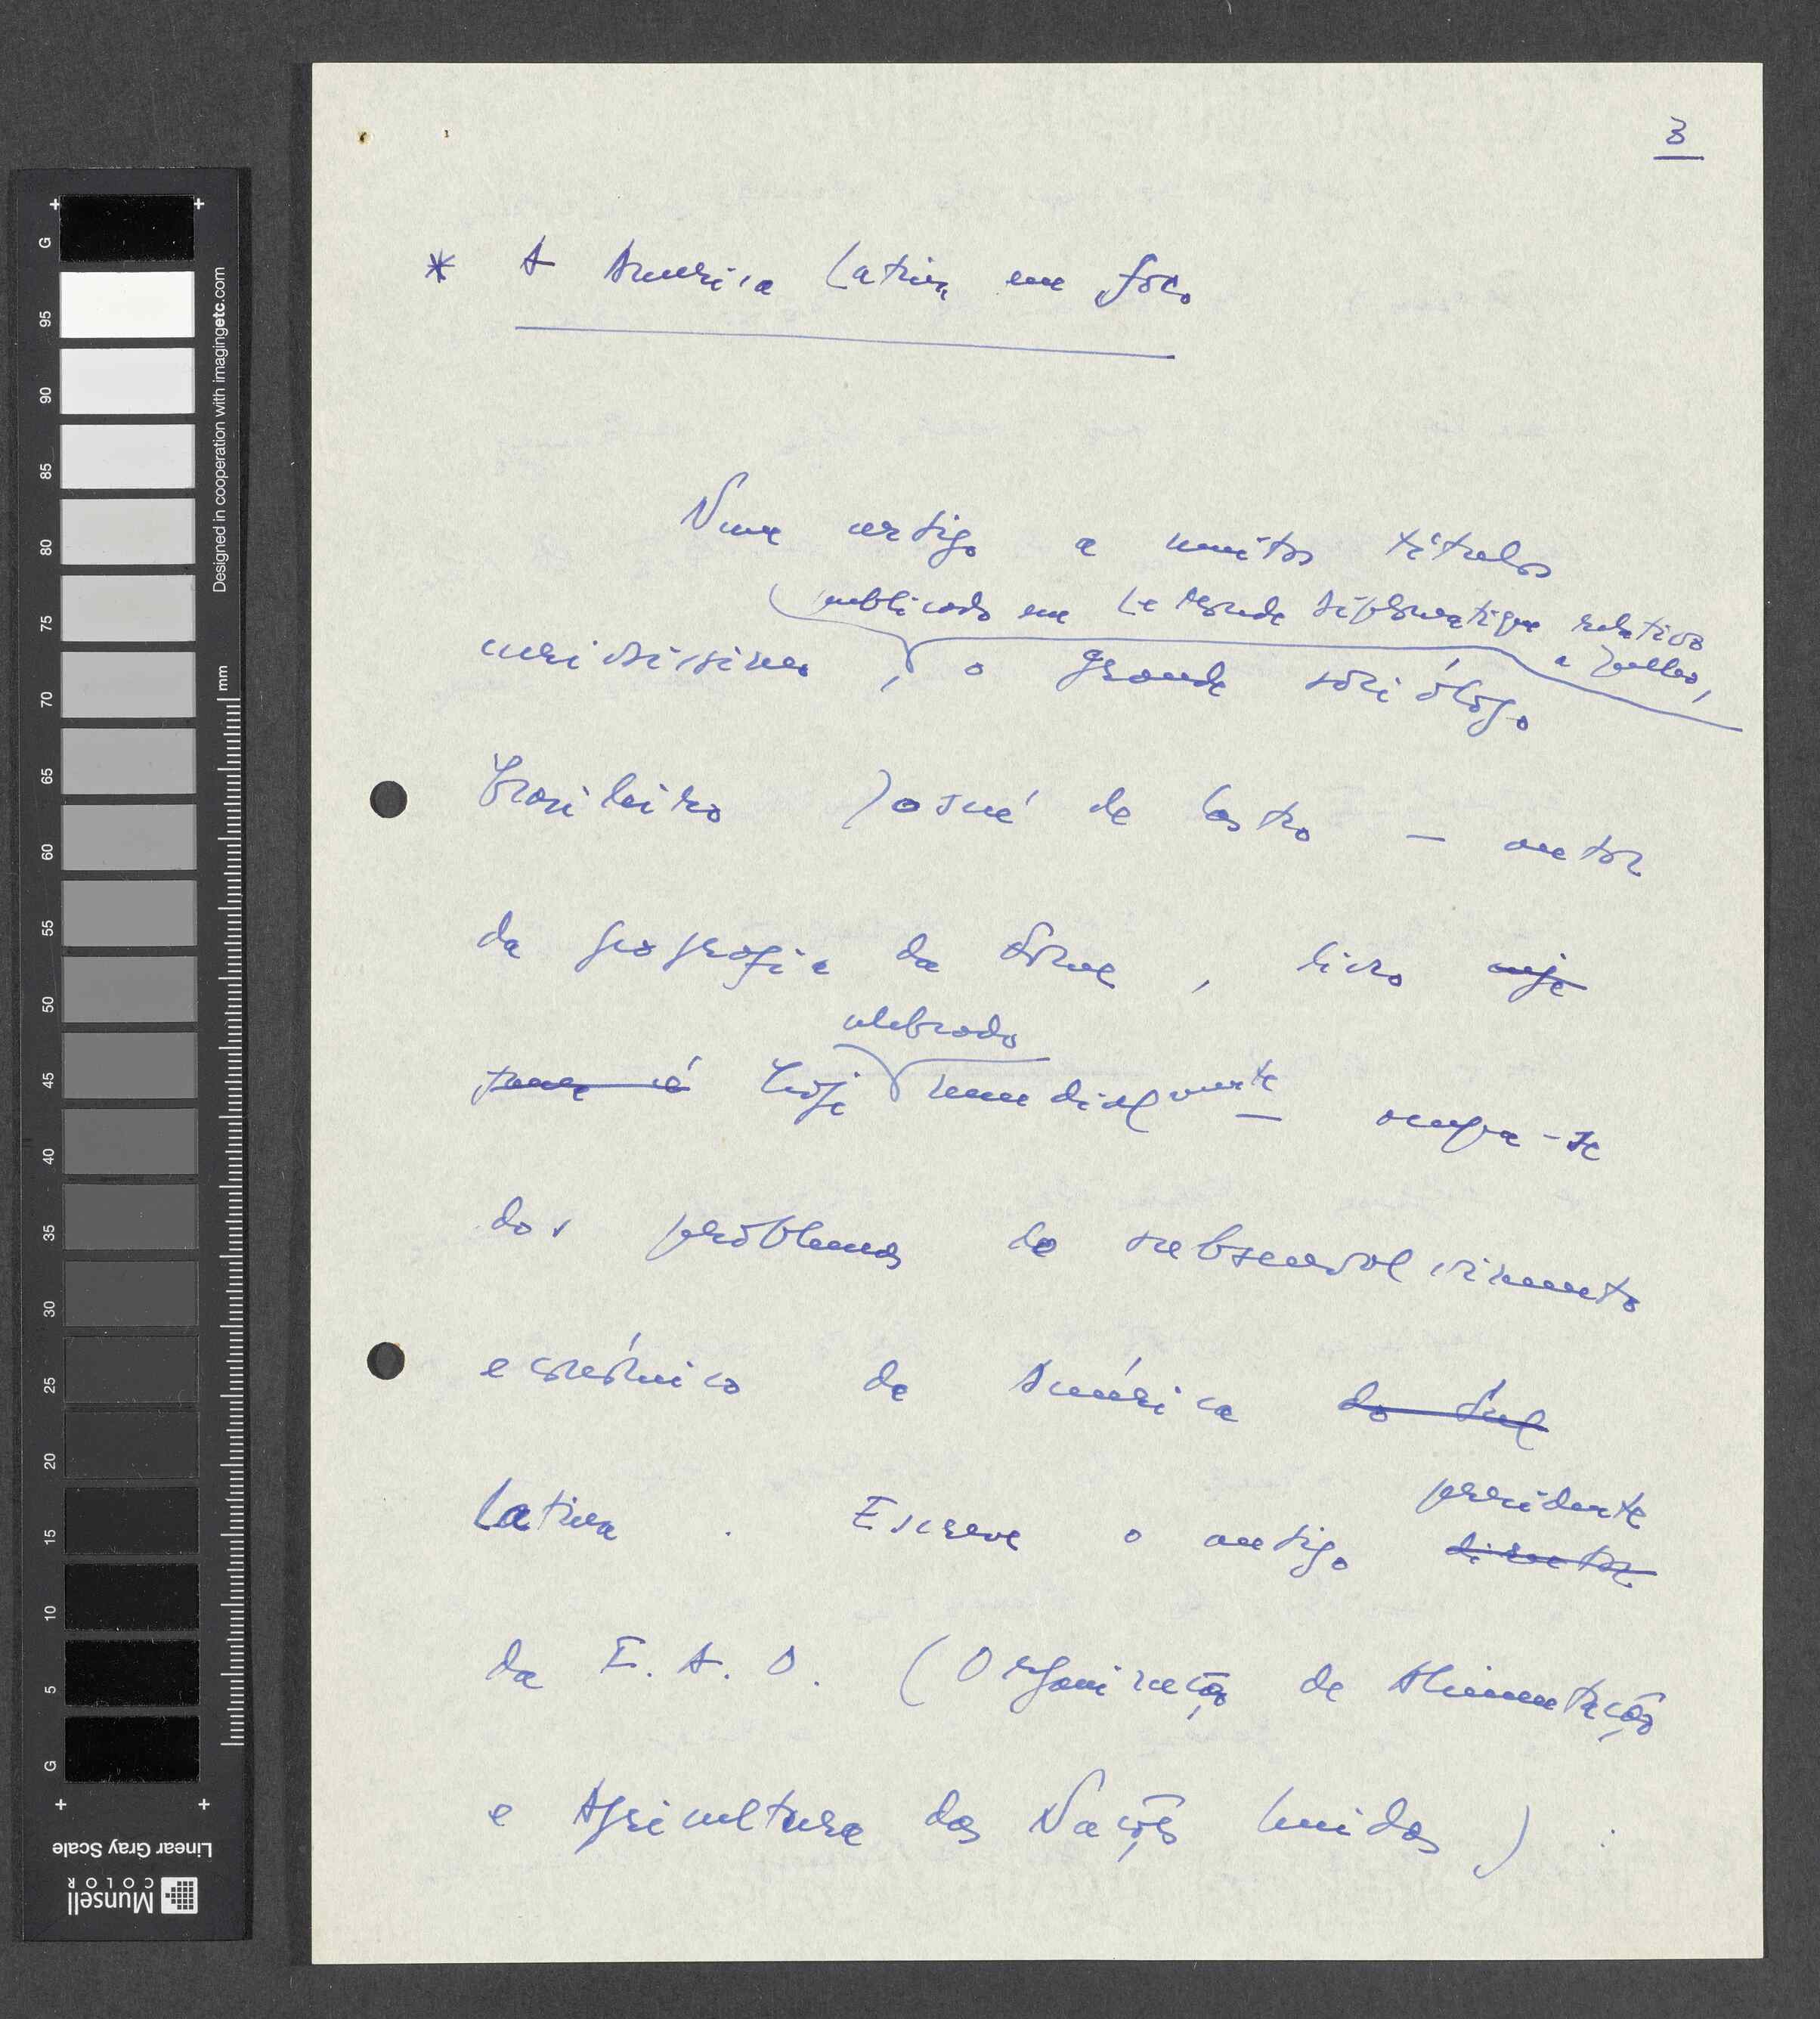 3
* A America Latina em foco
Num artigo a muitos títulos
publicado em Le Monde Diplomatique relativo
a Julho,
curiosíssimo, o grande sociólogo
brasileiro Josué de Castro — autor
da geografia da fome, livro cuja
fama é hoje celebrado mundialmente — ocupa-se
dos problemas do subsenvolvimento
económico da América do Sul
Latina. Escreve o antigo presidente
director
da F. A. O. (Organização de Alimentação
e Agricultura das Nações Unidas).
G 95 90 85 80 75 70 65 60 55 50 45 40 35 30 25 20 15 10 5 G
Designed in cooperation with imagingetc.com
mm
Linear Gray Scale
Munsell
COLOR